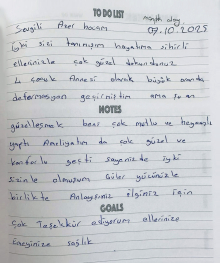 TO DO LIST
09.10.2025
Sevgili Azer hocam
İyi ki sizi tanımışım hayatıma sihirli
ellerinizle çok güzel dokundunuz
4 çocuk Annesi olarak büyük oranda
deformasyon geçirmiştim ama şu an
NOTES
güzelleşmek beni çok mutlu ve heyecanlı
yaptı Ameliyatım da çok güzel ve
konforlu geçti sayenizde iyiki
sizinle olmuşum Güler yüzünüzle
birlikte Anlayışınız ilginiz için
GOALS
Çok Teşekkür ediyorum ellerinize
Emeğinize sağlık